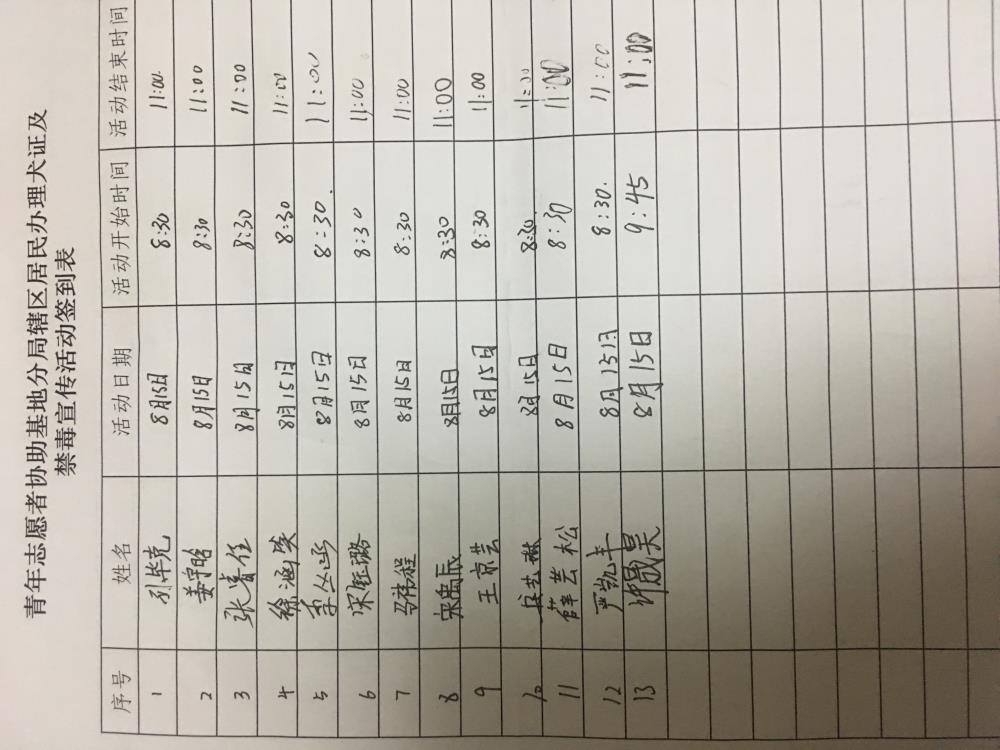 青年志愿者协助基地分局辖区居民办理犬证及
禁毒宣传活动签到表
序号 姓名 活动日期 活动开始时间 活动结束时间
1 8月15日 8:30 11:00
2 姜宇晗 8月15日 8:30 11:00
3 张睿任 8月15日 8:30 11:00
4 徐涵奕 8月15日 8:30 11:00
5 李丛函 8月15日 8:30. 11:00
6 宋钰璐 8月15日 8:30 11:00
7 马祎程 8月15日 8:30 11:00
8 宋禹辰 8月15日 8:30 11:00
9 王京芸 8月15日 8:30 11:00
10 8月15日 8:30. 11:00
11 薛芸松 8月15日 8:30 11:00
12 严凯丰 8月15日 8:30. 11:00
13 8月15日 9:45 11:00